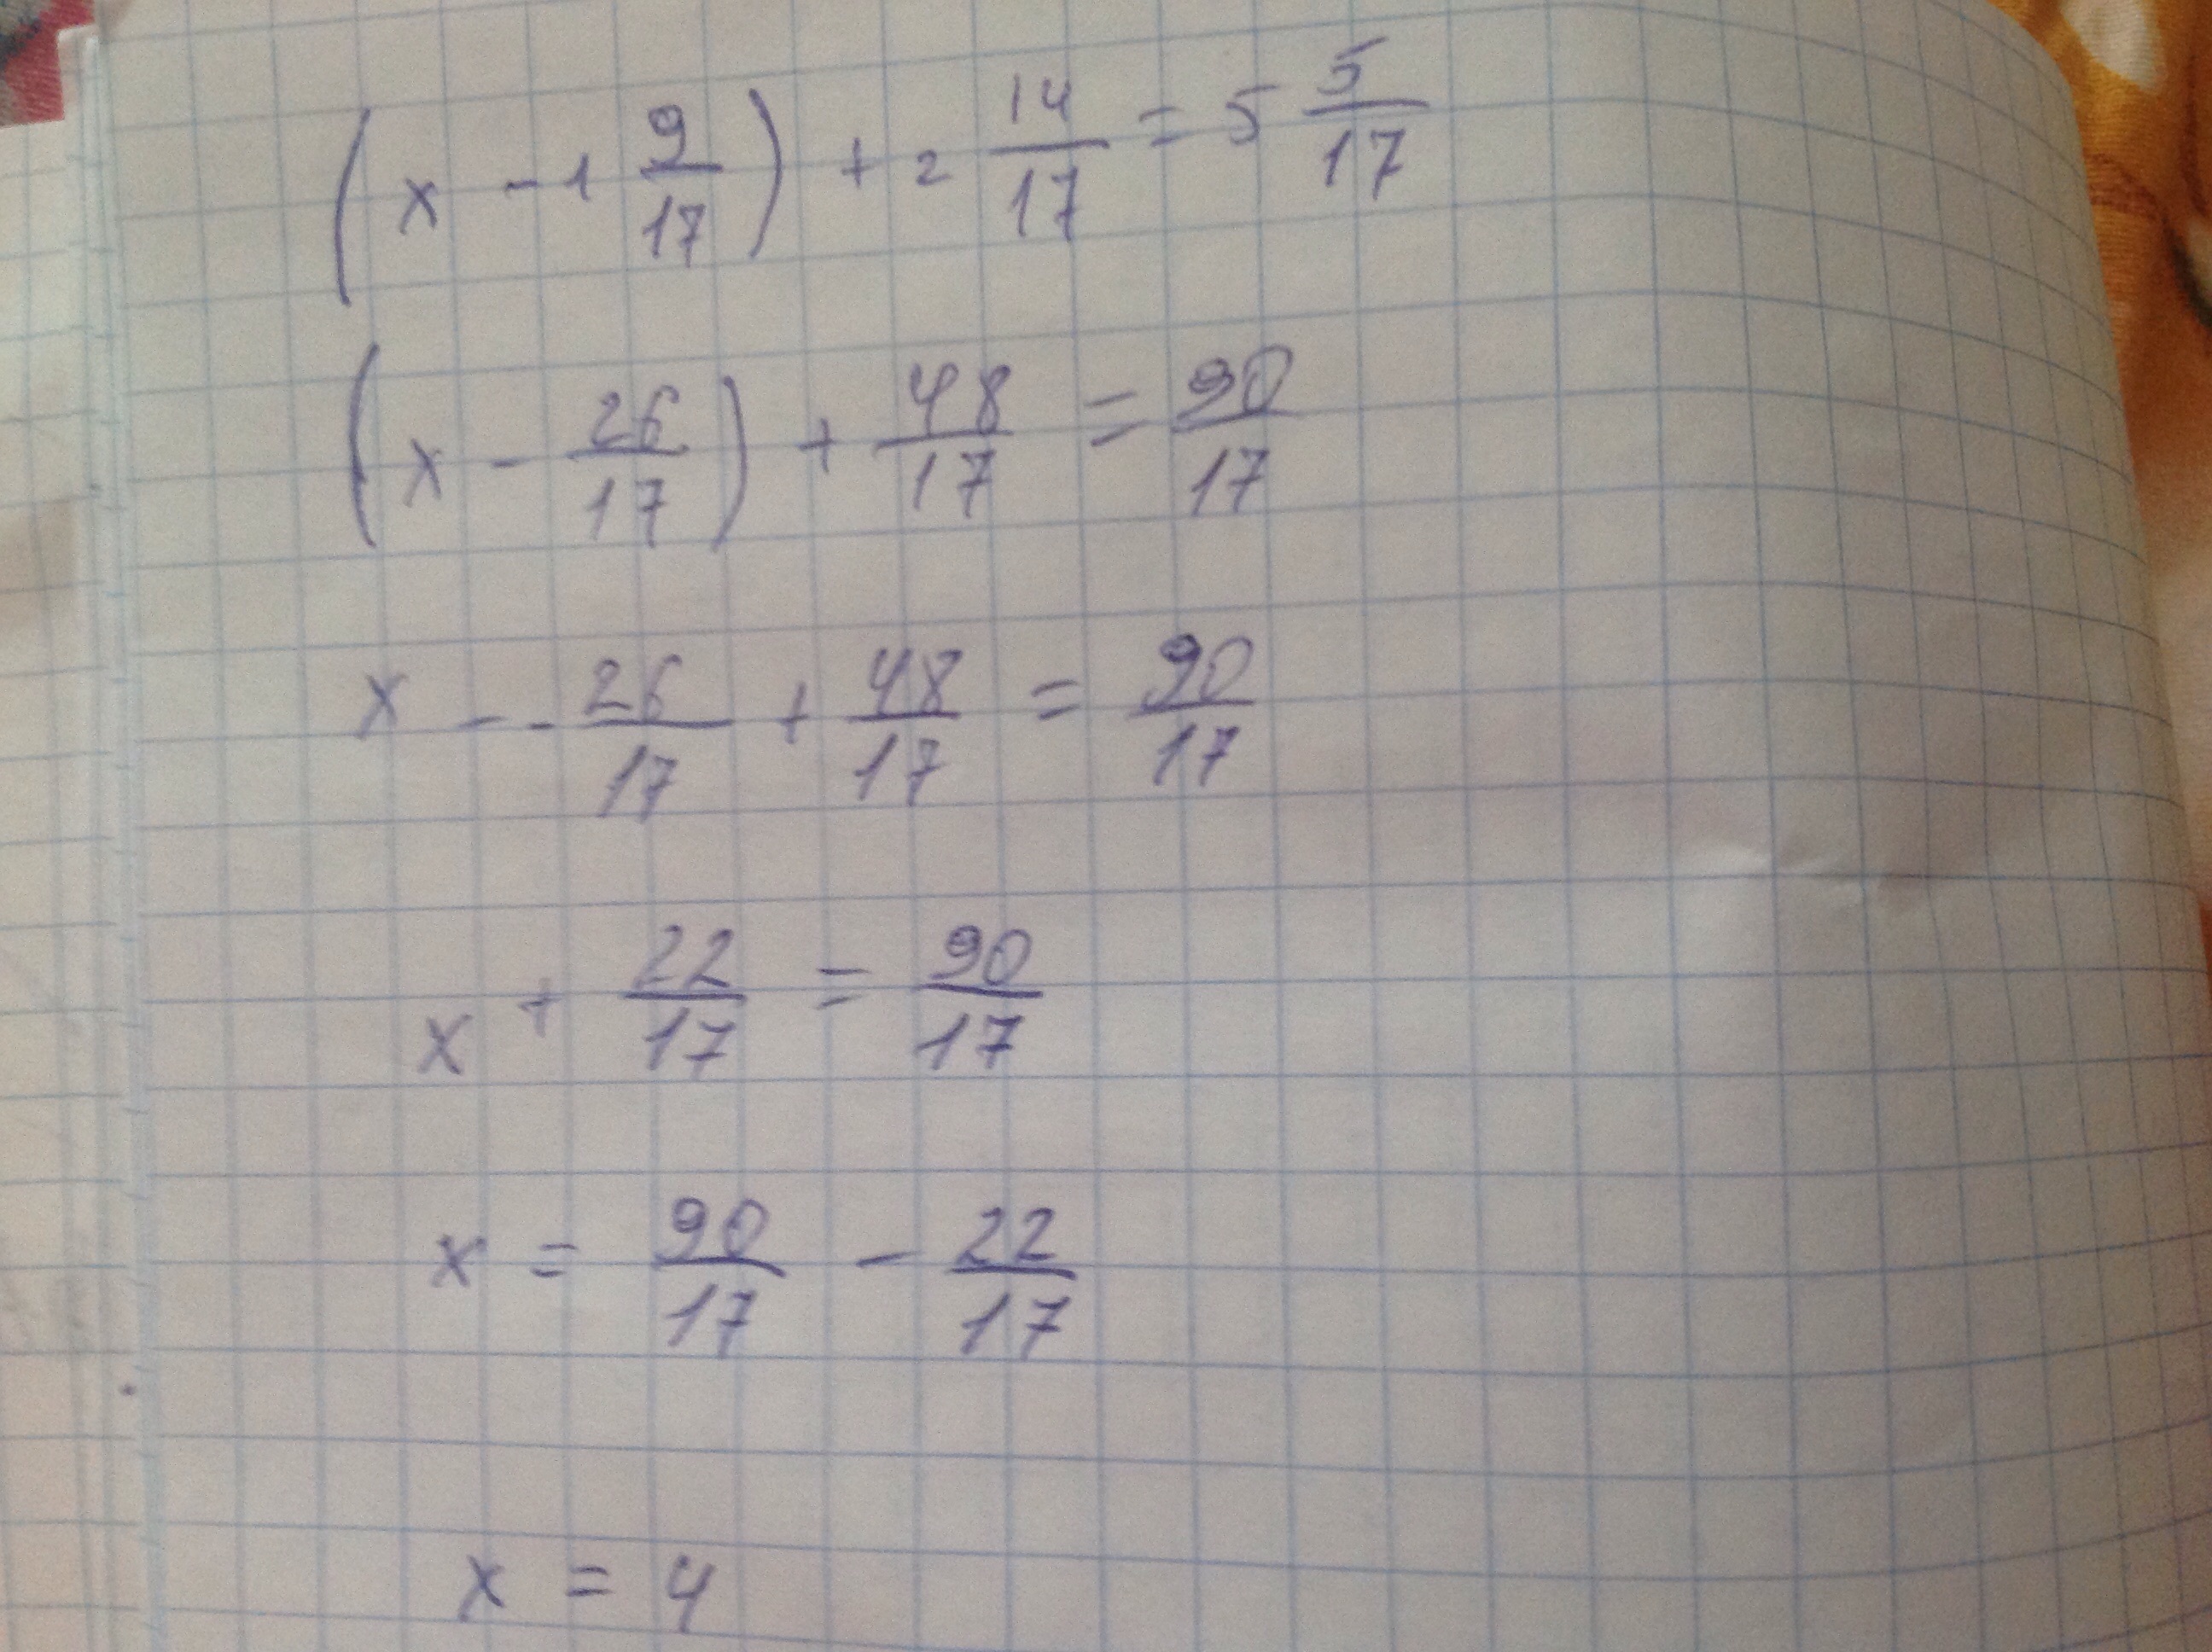 (x - 1 9/17) + 2 14/17 = 5 5/17
(x - 26/17) + 48/17 = 90/17
x - - 26/17 + 48/17 = 90/17
x + 22/17 = 90/17
x = 90/17 - 22/17
x = 4